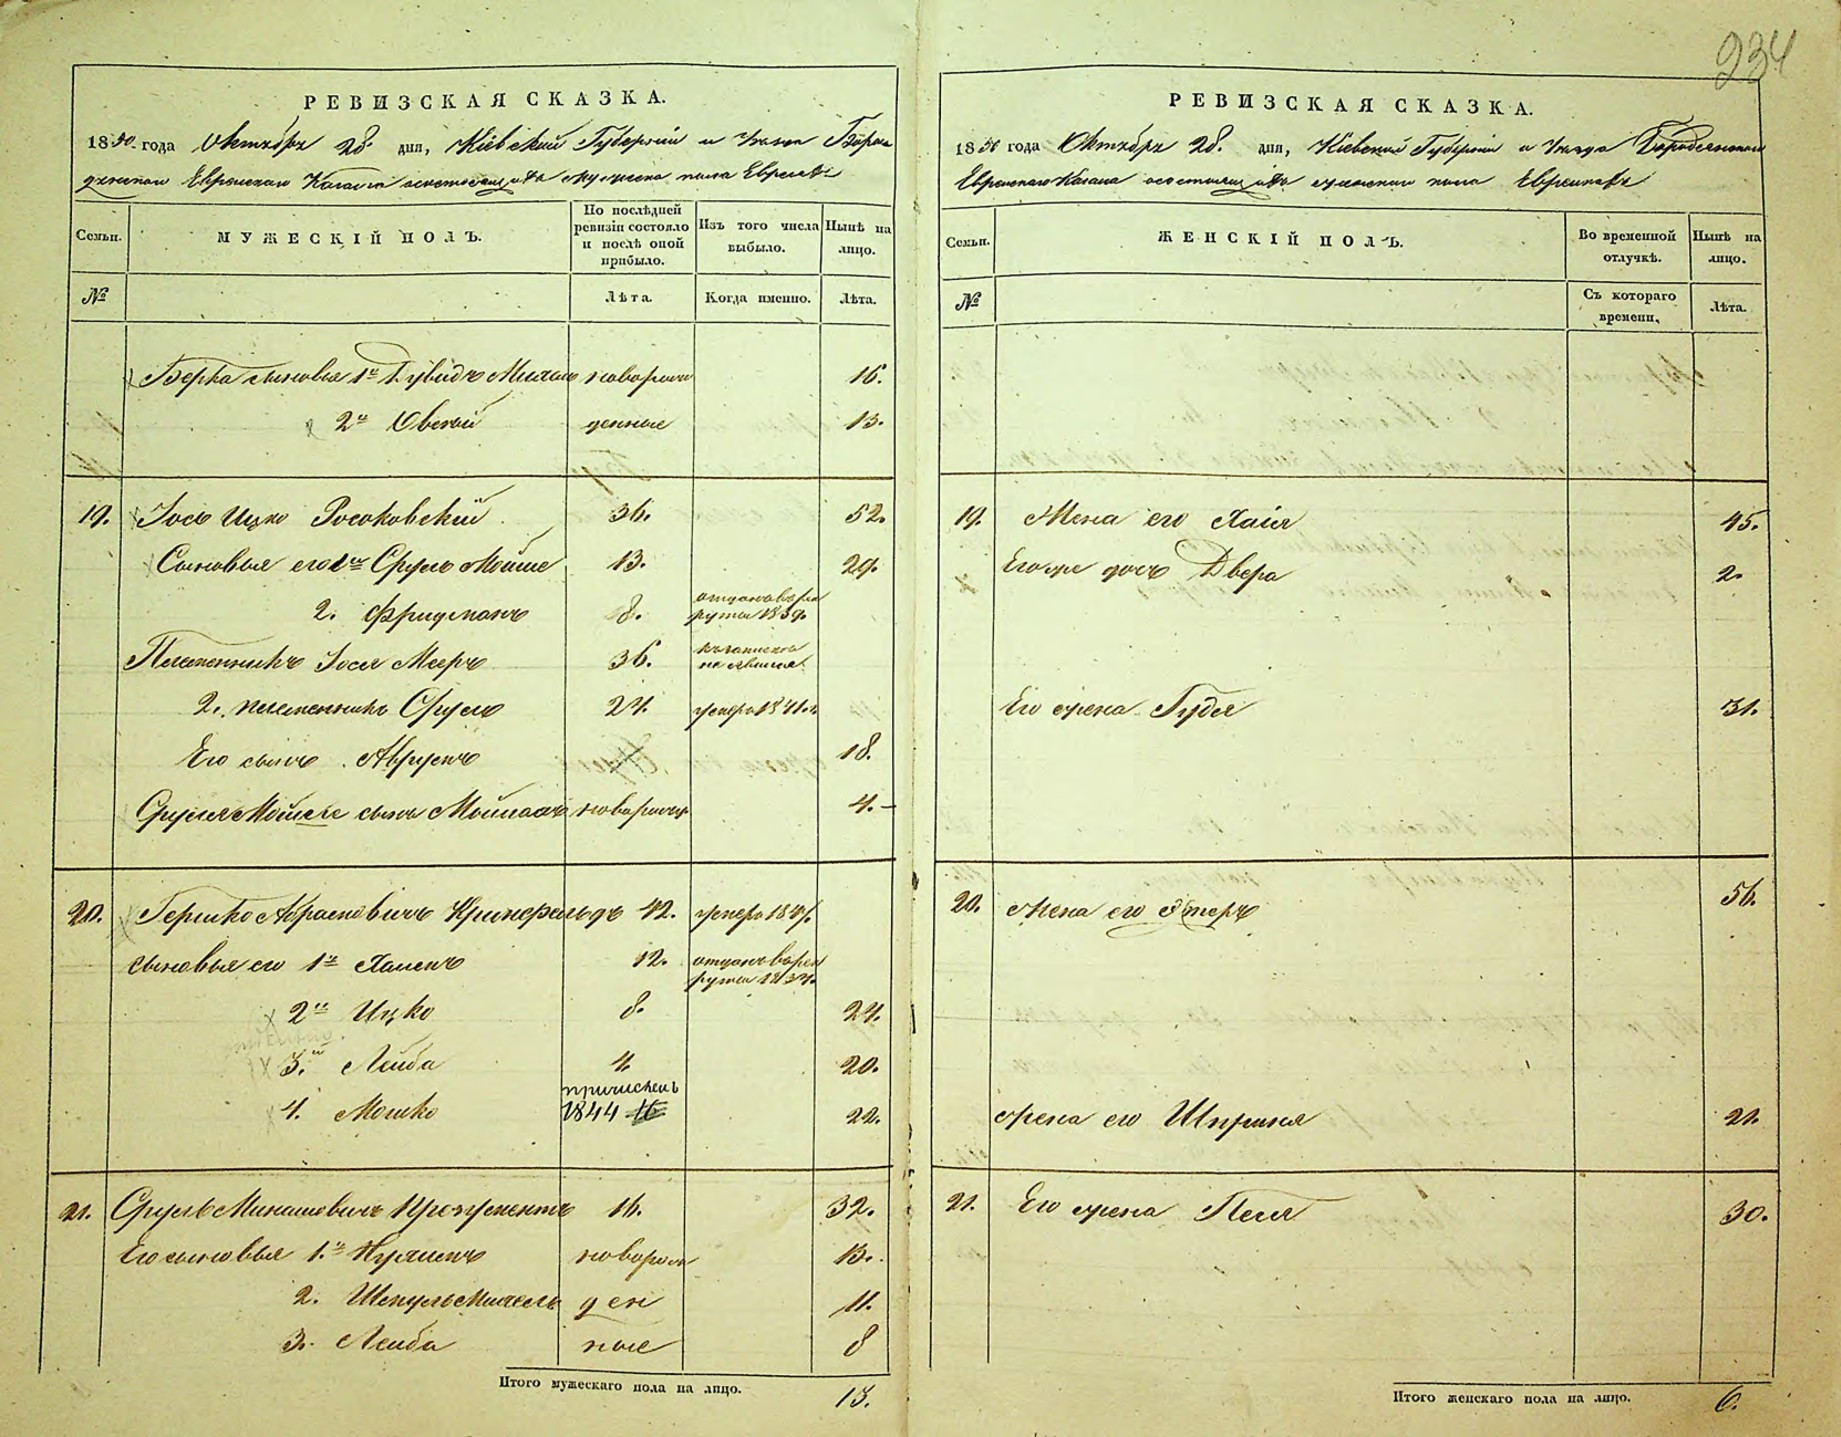 234
РЕВИЗСКАЯ СКАЗКА.
1850 года Октября 28. дня, Кіевской Губерніи и Уезда Бородянскаго Еврейскаго Кагала о состоящихъ мужеска пола Евреевъ
Семьи.
МУЖЕСКІЙ ПОЛЪ.
По послѣдней ревизіи состояло и послѣ оной прибыло.
Изъ того числа выбыло.
Нынѣ на лицо.
№
Лѣта.
Когда именно.
Лѣта.
Берка сыновья 1й Дувидъ новорож 16.
2й Овсей денные 13.
19. Іось Ицко Росоковскій 36. 52.
Сыновья его 1й Сруль Мойше 13. 29.
2. Фридманъ 8. отданъ в рекруты 1839.
Племенникъ Іося Мееръ 36.
не явился
2. племенникъ Сруль 24. умеръ 1841.
Его сынъ Аврумъ 18.
Сруля Мойше сынъ новорож 4.
20. Гершко Абрамовичъ 42. умеръ 184
сыновья его 1й 12. отданъ в рекруты 1834.
2й Ицко 8. 24.
3й Лейба 4. 20.
4. Мошко причисленъ 1844 22.
21. Сруль 16. 32.
Его сыновья 1й новорож 13.
2. ден 11.
3. Лейба ные 8
Итого мужескаго пола на лицо. 13.
РЕВИЗСКАЯ СКАЗКА.
1850 года Октября 28. дня, Кіевской Губерніи и Уезда Бородянскаго
Еврейскаго Кагала о состоящихъ женска пола Евреекъ
Семьи.
ЖЕНСКІЙ ПОЛЪ.
Во временной отлучкѣ.
Нынѣ на лицо.
№
Съ котораго времени.
Лѣта.
19. Жена его Хаія 45.
Его же дочь Двера 2.
Его жена Гудя 31.
20. жена его Эстеръ 56.
жена его Шпринца 21.
21. Его жена Песя 30.
Итого женскаго пола на лицо. 6.